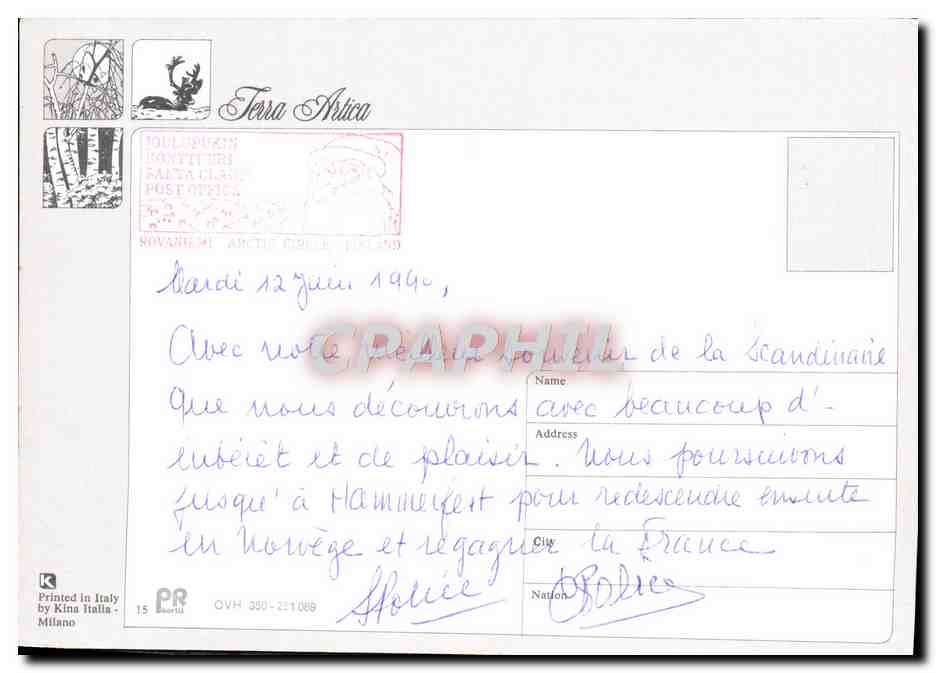 Terra Artica
JOULUPUKIN
KONTTUURI
SANTA CLAUS
POST OFFICE
ROVANIEMI ARCTIC CIRCLE FINLAND
Mardi 12 Juin 1990,
CPARPHIL
Avec notre meilleur souvenir de la Scandinavie
Name
que nous découvrons avec beaucoup d'-
Address
intérêt et de plaisir. Nous poursuivons
jusqu'à Hammerfest pour redescendre ensuite
City
en Norvège et regagner la France
Nation
K
Printed in Italy
by Kina Italia -
Milano
15 PR OVH 350-251089